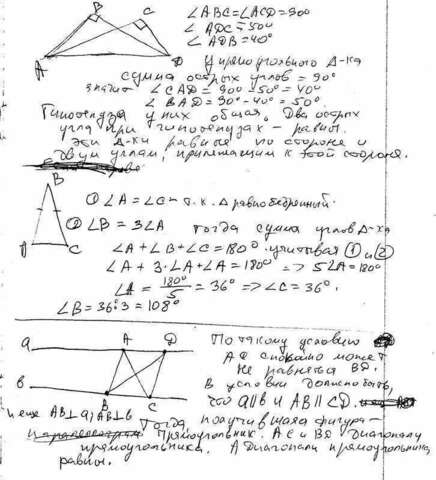 B C
A D
∠ABC=∠ACD=90°
∠ADC=50°
∠ADB=40°
У прямоугольного Δ-ка
сумма острых углов = 90°
значит ∠CAD = 90°-50°=40°
∠BAD=90°-40°=50°
Гипотенуза у них общая. Два острых
угла при гипотенузах - равны.
Эти Δ-ки равны по стороне и
двум углам, прилежащим к этой стороне.
B
① ∠A=∠C - т.к. Δ равнобедренный.
② ∠B=3∠A тогда сумма углов Δ-ка
∠A+∠B+∠C=180° учитывая ① и ②
∠A+3·∠A+∠A=180° => 5∠A=180°
∠A=180°/5=36° => ∠C=36°.
∠B=36:3=108°
C
По такому условию
a A D
AC спокойно может
не равняться BD.
В условии должно быть,
b B C
что a||b и AB||CD.
и еще AB⊥a; AB⊥b
Тогда, получившаяся фигура -
прямоугольник. AC и BD диагонали
прямоугольника. А диагонали прямоугольника
равны.